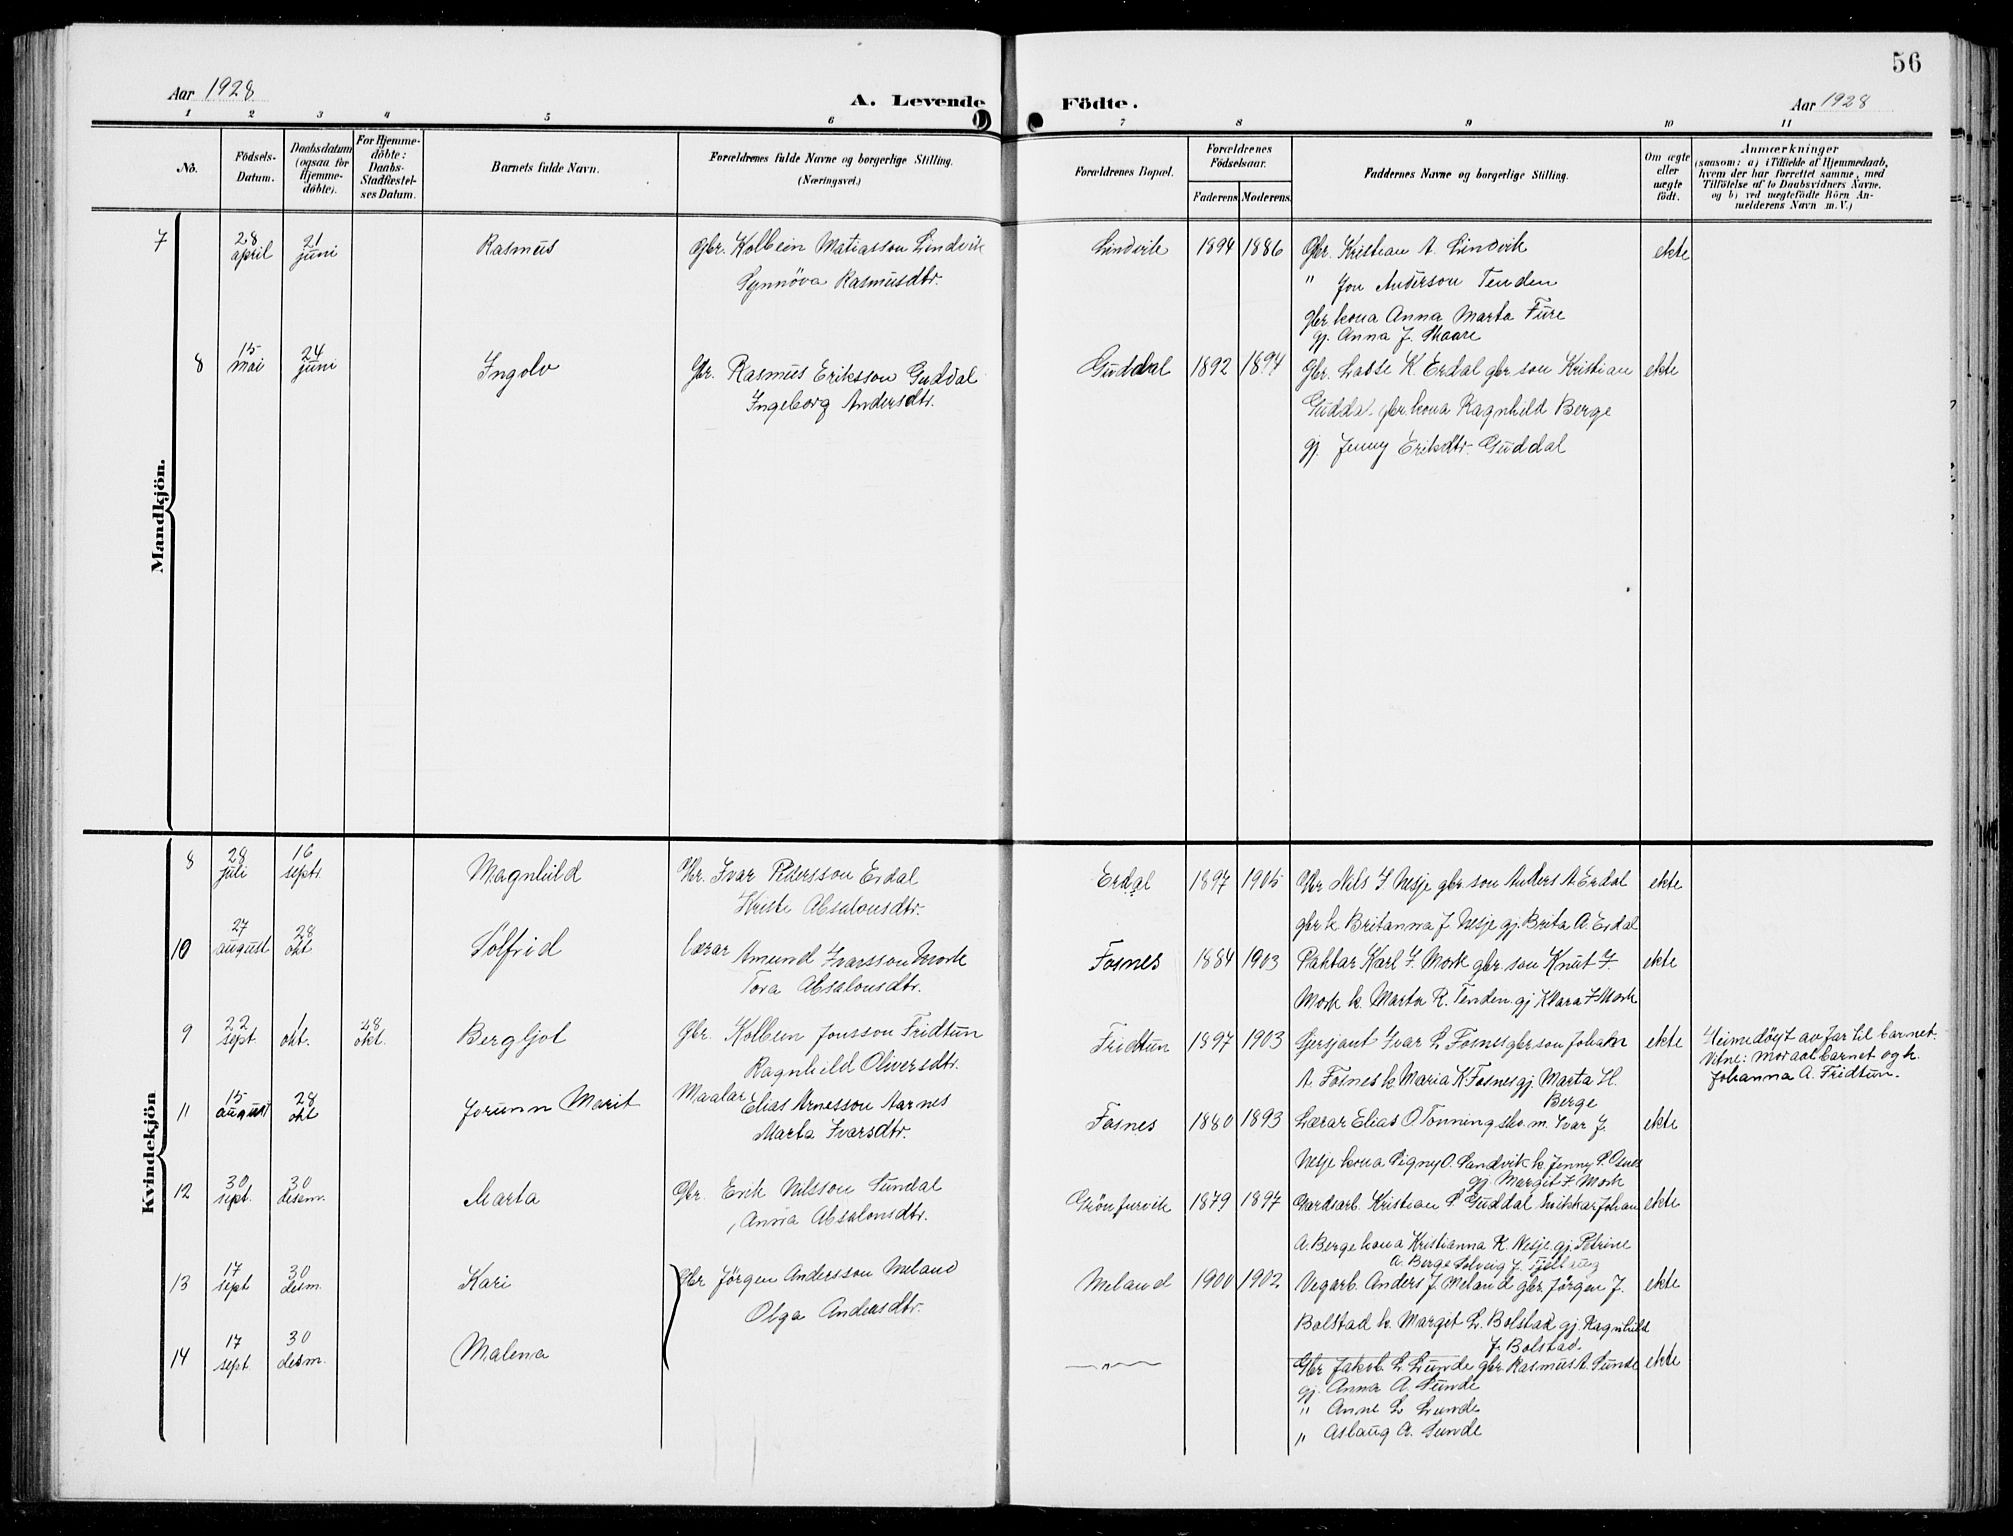 56
Aar 1928
A. Levende
Födte.
Aar 1928
1 2 3 4 5 6 7 8 9 10 11
No.
Födsels-
Datum.
Daabsdatum
(ogsaa for
Hjemme-
döbte).
For Hjemme-
döbte:
Daabs-
Stadfæstel-
ses Datum.
Barnets fulde Navn.
Forældrenes fulde Navne og borgerlige Stilling.
(Næringsvei.)
Forældrenes Bopæl.
Forældrenes
Födselsaar.
Faderens Moderens
Faddernes Navne og borgerlige Stilling.
Om ægte
eller
uægte
födt.
Anmærkninger
(saasom: a) i Tilfælde af Hjemmedaab,
hvem der har forrettet samme, med
Tilföielse af to Daabsvidners Navne,
og b) ved uægtefödte Börn An-
melderens Navn m. V.)
Mandkjön.
7 28 april 21 juni Rasmus Gbr. Kolbein Matiasson Lindvik Lindvik 1894 1886 Gbr. Kristian A. Lindvik ekte
Synnöva Rasmusdtr. " Jon Anderson Tenden
gbr kona Anna Marta Fure
gj. Anna J. Skaare
8 15 mai 24 juni Ingolv Gbr. Rasmus Eriksson Guddal Guddal 1892 1894 Gbr. Lasse K Erdal gbr son Kristian ekte
Ingeborg Andersdtr. Guddal gbr kona Ragnhild Berge
gj. Jenny Eriksdtr. Guddal
Kvindekjön
8 28 juli 16 septr. Magnhild Gbr. Ivar Pedersson Erdal Erdal 1897 1905 Gbr Nils J Nesje gbr son Anders A. Erdal ekte
Kristi Absalonsdtr. gbr k. Britanna J. Nesje gj. Brita A. Erdal
10 27 august 28 okt Solfrid Lærar Amund Ivarsson Mork Fosnes 1884 1903 Paktar Karl I. Mork gbr. son Knut I. ekte
Tora Absalonsdtr. Mork k. Marta R. Tenden gj Klara I Mork
9 22 sept 1 okt. 28 okt. Bergljot Gbr. Kolbein Jonsson Fridtun Fridtun 1897 1903 Sersjant Ivar L Fosnes gbr son Johan ekte Heimedöypt av far til barnet.
Ragnhild Oliversdtr. A. Fosnes k Maria K Fosnes gj. Marta H. Vitne: mor aat barnet og k.
Berge Johanna A. Fridtun.
11 15 august 28 okt Jorunn Marit Maalar Elias Arnesson Aarnes Fosnes 1880 1893 Lærar Elias O Tonning m. Ivar J. ekte
Marta Ivarsdtr. Nesje kona Signy O. Sandvik k. Jenny P.
gj. Margit I. Mork
12 30 sept. 30 desm. Marta Gbr. Erik Nilsson Sundal Grönfurvik 1879 1897 Gardsarb. Kristian P. Guddal Snikkar Johan ekte
Anna Absalonsdtr. A. Berge kona Kristianna K. Nesje gj. Petrine
A. Berge Solveig J.
13 17 sept 30 desm. Kari Gbr Jörgen Andersson Meland Meland 1900 1902 Vegarb. Anders J. Meland gbr. Jörgen J. ekte
Olga Andersdtr. Bolstad k. Margit L. Bolstad gj. Ragnhild
J. Bolstad.
14 17 sept 30 desm. Malena — " — Gbr Jakob L. Lunde gbr Rasmus A. Sunde ekte
gj. Anna A. Sunde
" Anne L Lunde
" Aslaug A. Sunde